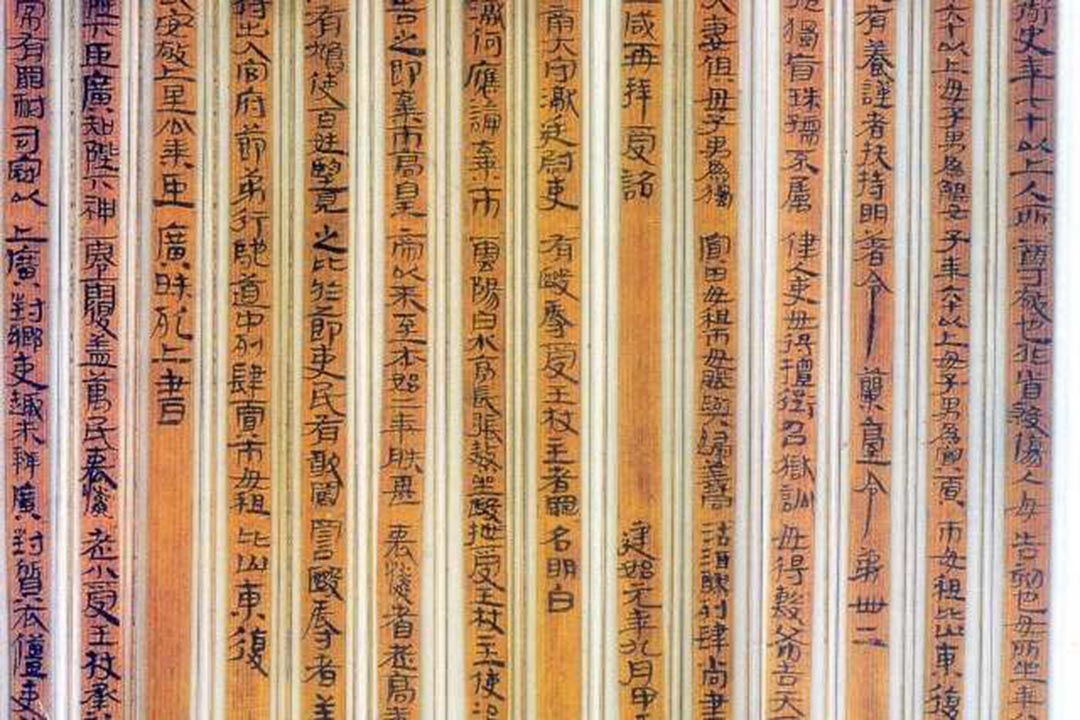 御史年七十以上人所尊敬也非首殺傷人毋告劾也毋所坐年
六十以上毋子男為鰥女子年六十以上毋子男為寡賈市毋租比山東復
有養謹者扶持明著令 蘭臺令 第卌二
獨盲珠孺不屬律人吏毋得擅徵召獄訟毋得
夫妻俱毋子男為獨寡田毋租市毋賦與歸義同沽酒醪列肆尚書
咸再拜受詔 建始元年九月甲
南大守讞廷尉吏有毆辱受王杖主者罪名明白
讞何應論棄市雲陽白水亭長張熬坐毆抴受王杖主使
告之即棄市高皇帝以來至本始二年朕甚哀憐耆老高年
有鳩使百姓望見之比於節吏民有敢罵詈毆辱者
得出入官府節第行馳道中列肆賈市毋租比山東復
敬上里公乘臣廣昧死上書
臣廣知陛下神零覆蓋萬民哀憐老小受王杖承
常有罪耐司寇以上廣對鄉吏趣未辨廣對質衣僵吏